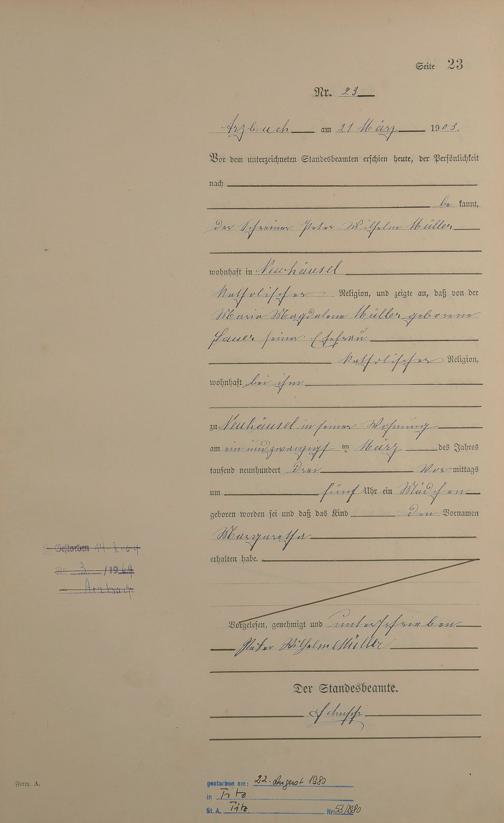 Seite 23
Nr. 23
Arzbach am 21 März 1903.
Vor dem unterzeichneten Standesbeamten erschien heute, der Persönlichkeit
nach
be kannt,
der Schreiner Peter Wilhelm Müller
wohnhaft in Neuhäusel
katholischer Religion, und zeigte an, daß von der
Maria Magdalena Müller geborene
Sauer seine Ehefrau
katholischer Religion,
wohnhaft bei ihm
zu Neuhäusel in seiner Wohnung
am ein und zwanzigst en März des Jahres
tausend neunhundert drei Vor mittags
um fünf Uhr ein Mädchen
geboren worden sei und daß das Kind den Vornamen
Margaretha
erhalten habe.
Vorgelesen, genehmigt und unterschrieben
Peter Wilhelm Müller
Der Standesbeamte.
Gestorben
3 /1964
Form. A.
gestorben am: 22. August 1980
in Titz
St. A. Titz Nr. 53/1980